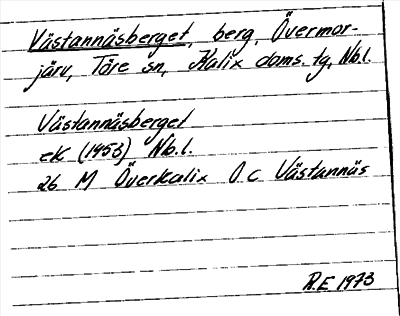 Västannäsberget, berg, Övermor-
järv, Töre sn, Kalix doms. tg, Nb.l.
Västannäsberget
ek (1953) Nb.l.
26 M Överkalix O.C Västannäs
R.E 1973